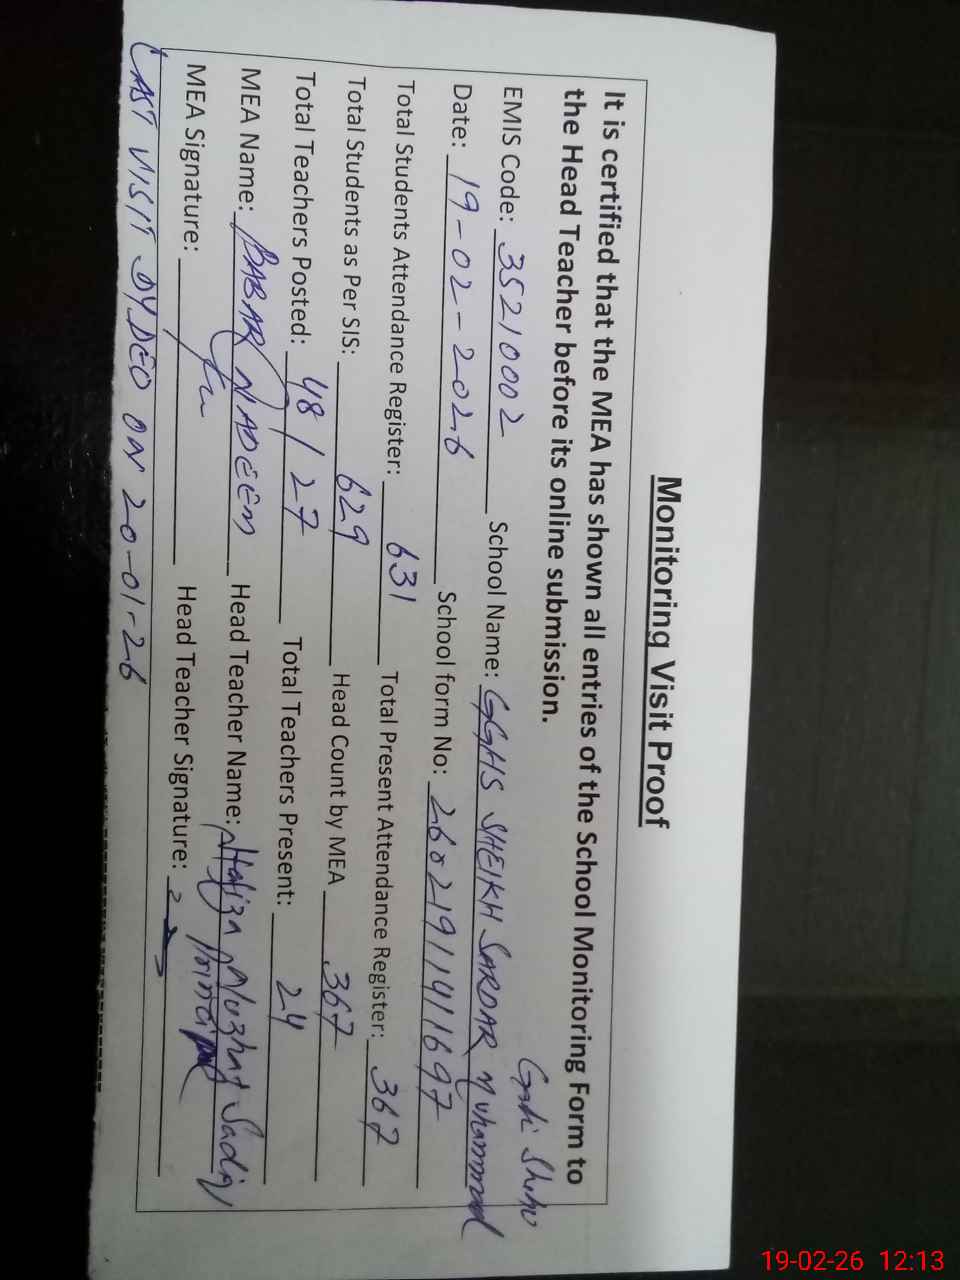 Monitoring Visit Proof
It is certified that the MEA has shown all entries of the School Monitoring Form to
the Head Teacher before its online submission.
EMIS Code: 35210002 School Name: GGHS SHEIKH SARDAR Muhammad
Date: 19-02-2026 School form No: 2602191141697
Total Students Attendance Register: 631 Total Present Attendance Register: 367
Total Students as Per SIS: 629 Head Count by MEA 367
Total Teachers Posted: 48/27 Total Teachers Present: 24
MEA Name: BABAR NADEEM Head Teacher Name: Hafiza Nuzhat Sadiq
MEA Signature: Head Teacher Signature:
Principal
LAST VISIT DY.DEO ON 20-01-26
19-02-26 12:13